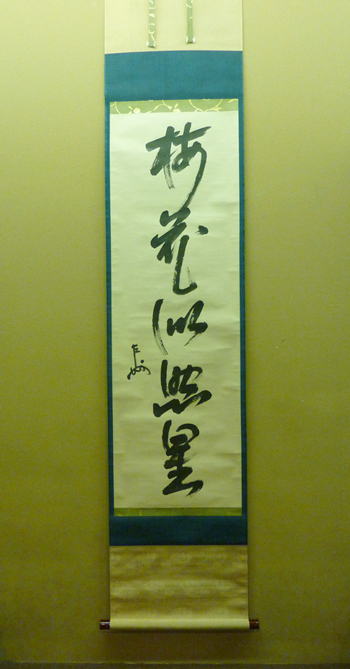 梅花似照星